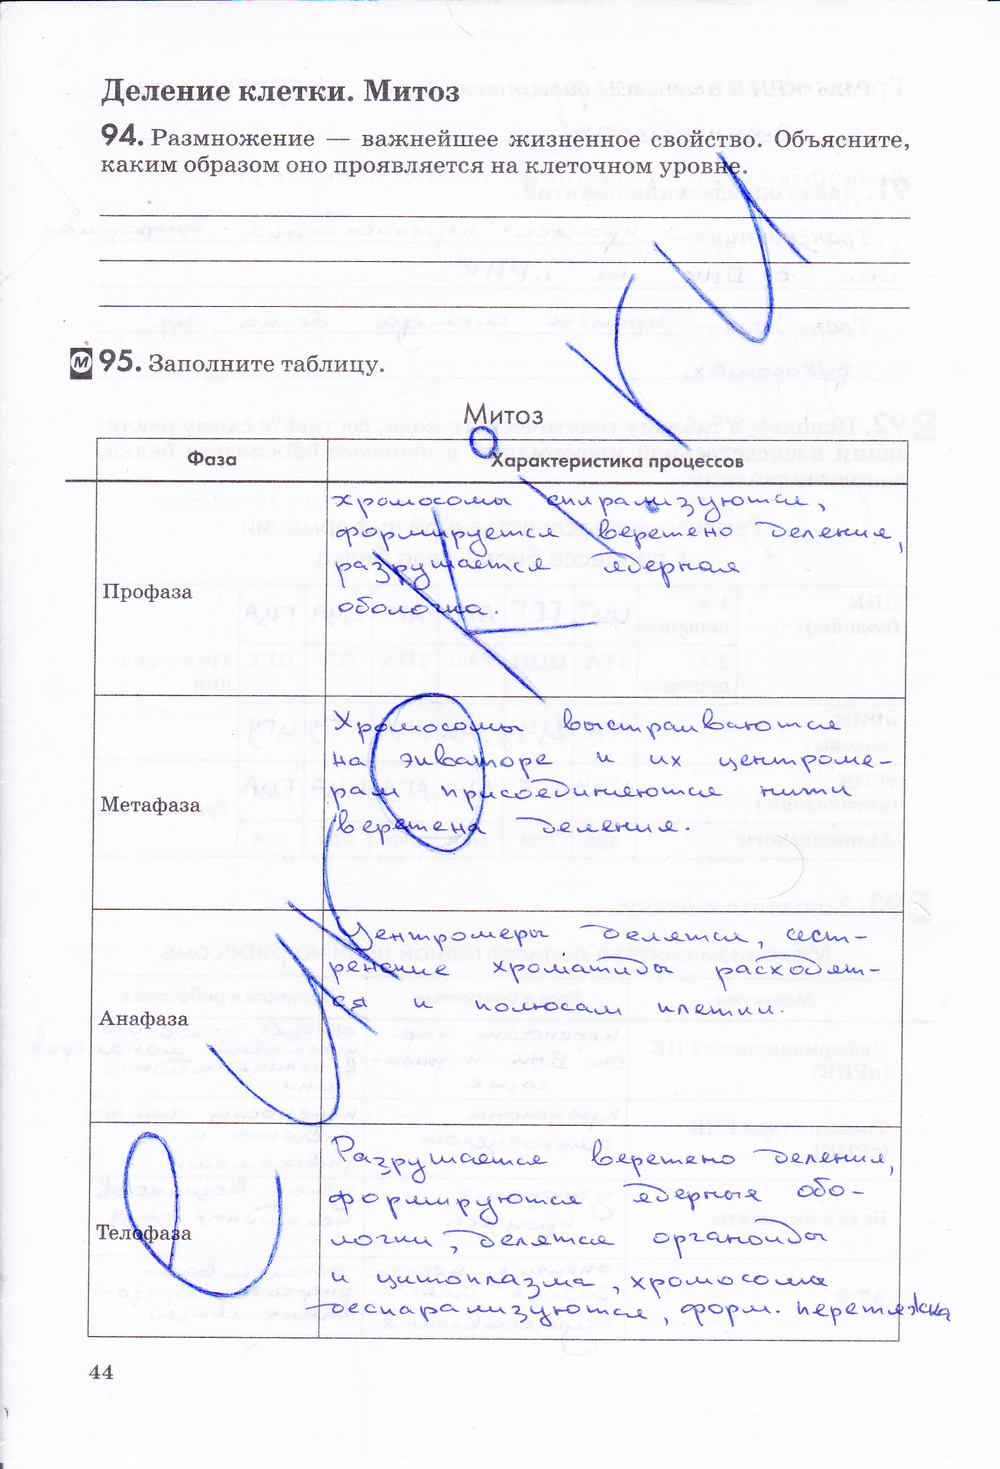 Деление клетки. Митоз
94. Размножение — важнейшее жизненное свойство. Объясните,
каким образом оно проявляется на клеточном уровне.
М 95. Заполните таблицу.
Митоз
Фаза
Характеристика процессов
Профаза
хромосомы спирализуются,
формируется веретено деления,
разрушается ядерная
оболочка.
Метафаза
Хромосомы выстраиваются
на экваторе и их центроме-
рам присоединяются нити
веретена деления.
Анафаза
Центромеры делятся, сест-
ренские хроматиды расходят-
ся к полюсам клетки.
Телофаза
Разрушается веретено деления,
формируются ядерные обо-
лочки, делятся органоиды
и цитоплазма, хромосомы
деспарализуются, форм. перетяжка
44